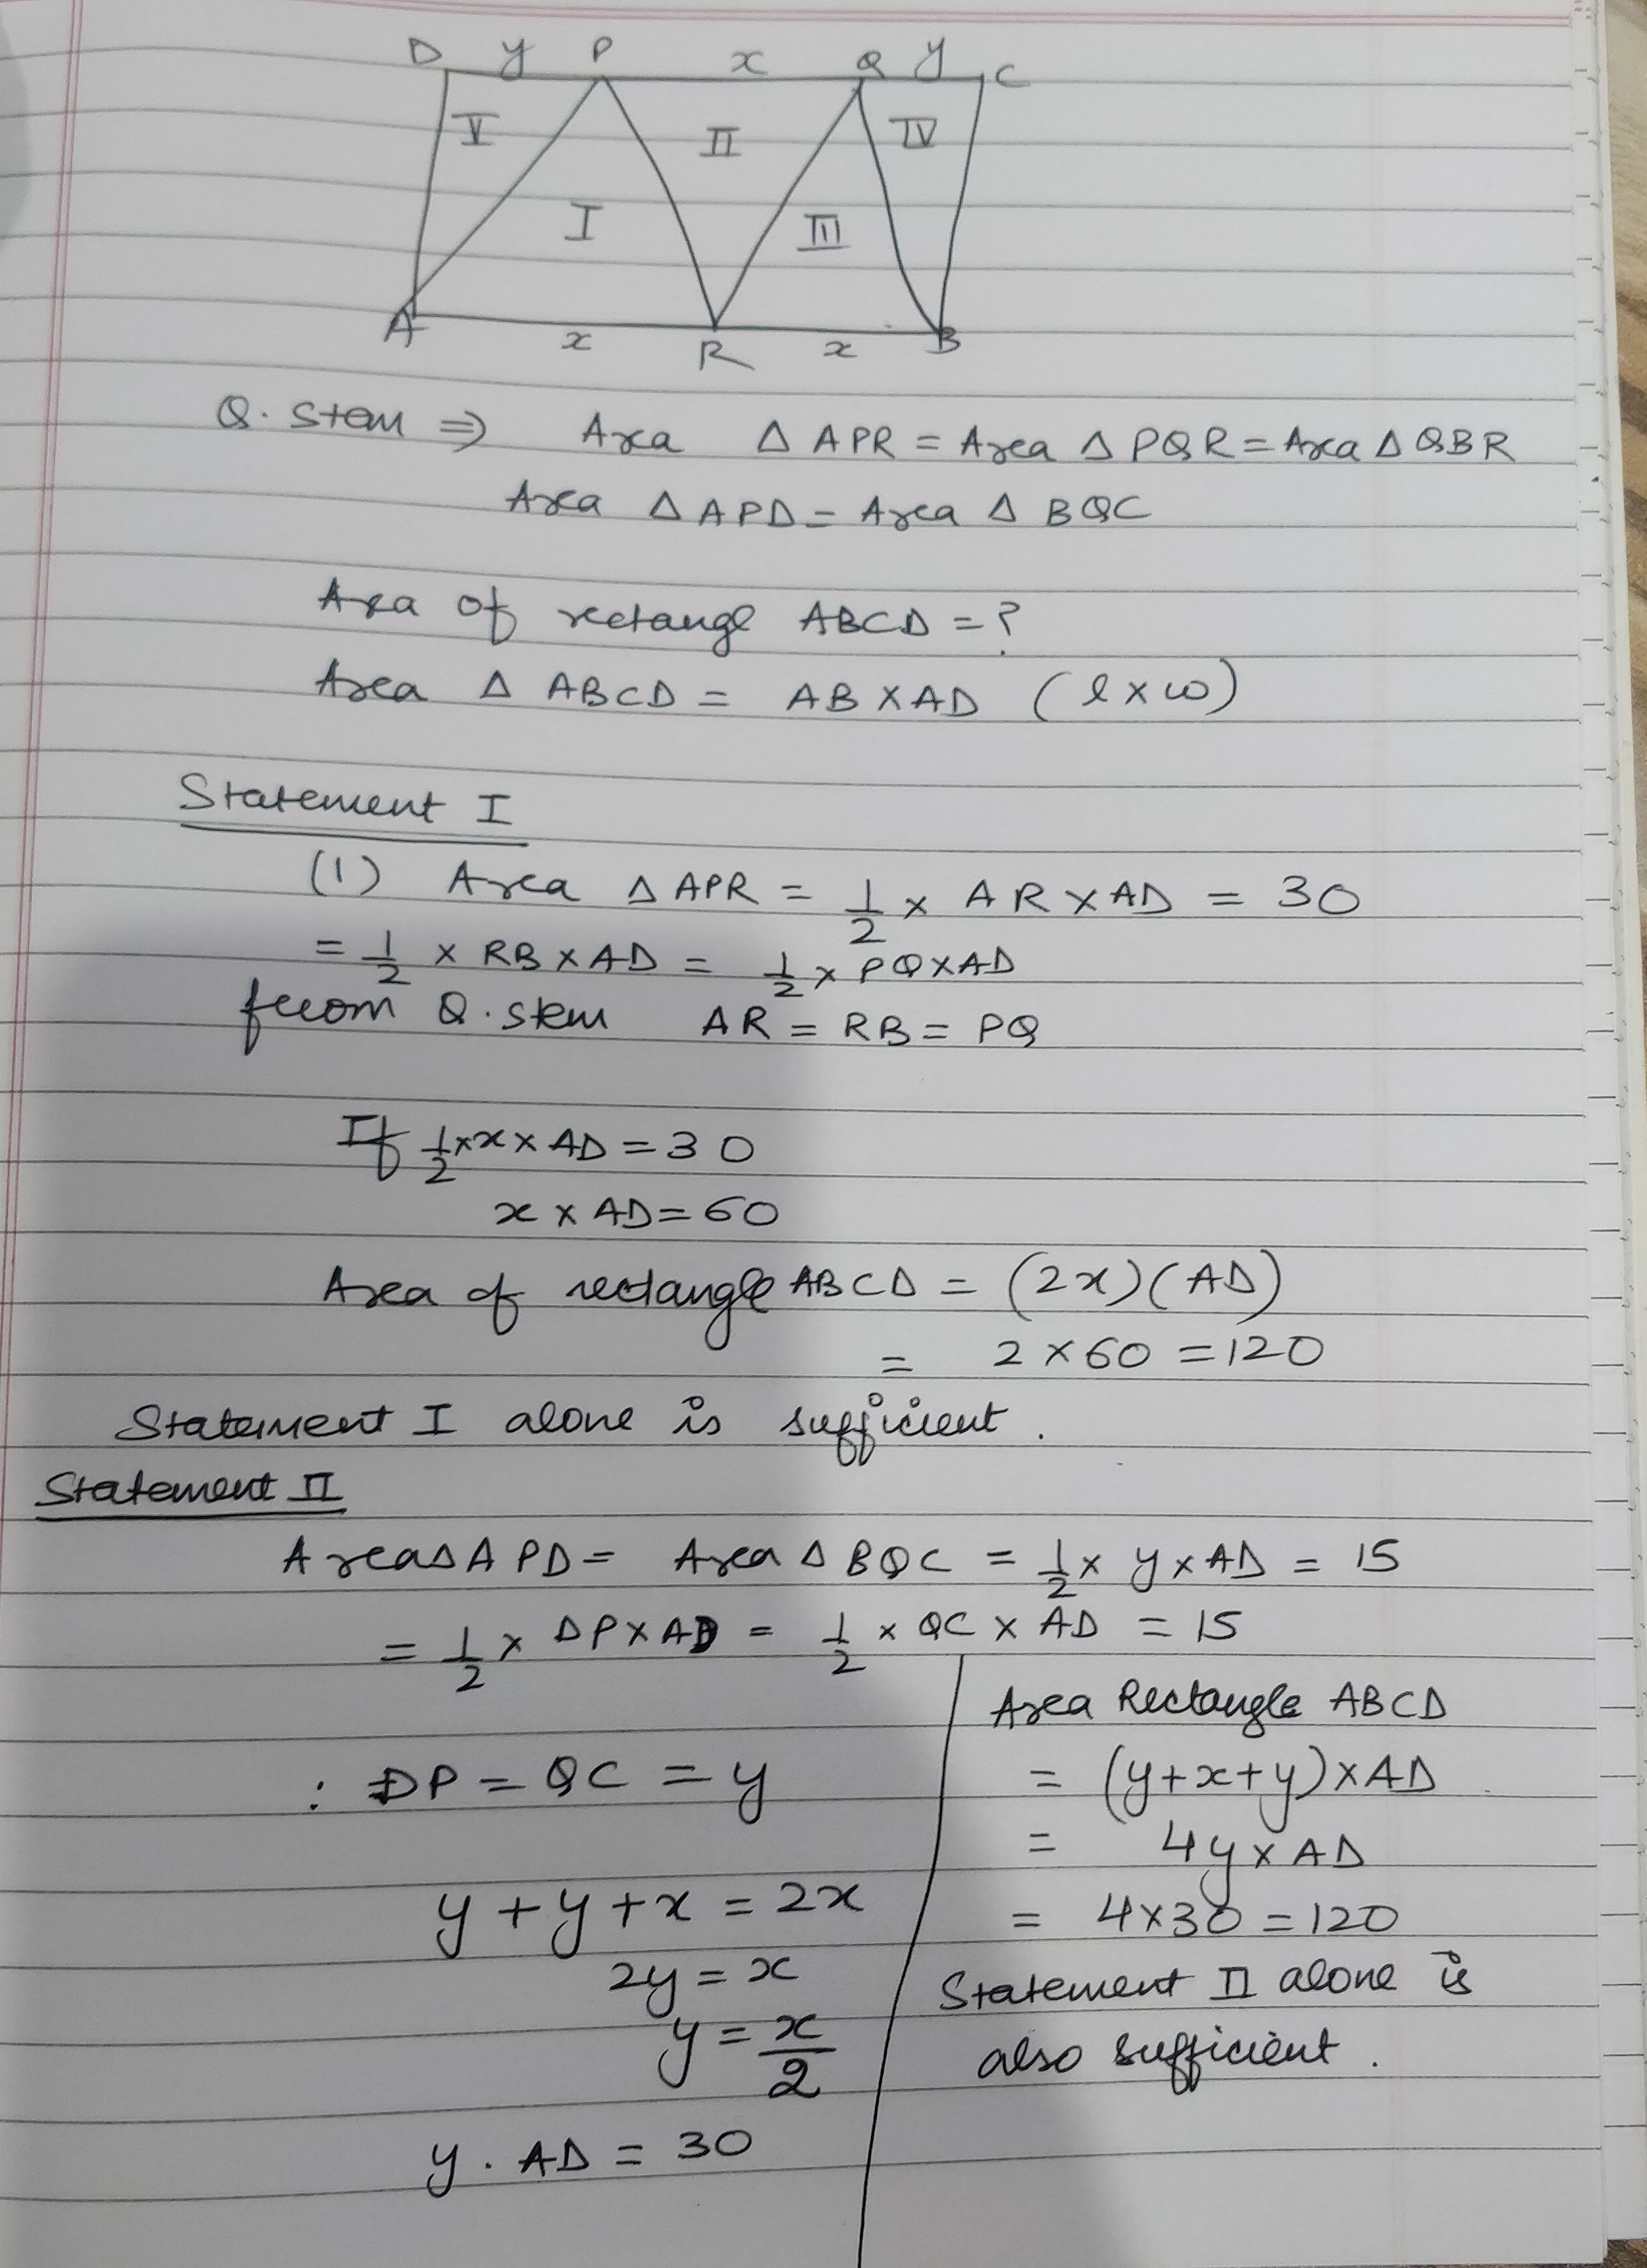 D y P x Q y C
V II IV
I III
A x R x B
Q. Stem ⇒ Area △ APR = Area △ PQR = Area △ QBR
Area △ APD = Area △ BQC
Area of rectangl ABCD = ?
Area △ ABCD = AB X AD (l x w)
Statement I
(1) Area △ APR = 1/2 x AR x AD = 30
= 1/2 x RB x AD = 1/2 x PQ x AD
from Q. stem AR = RB = PQ
If 1/2 x x x AD = 30
x x AD = 60
Area of rectangle ABCD = (2x)(AD)
= 2 x 60 = 120
Statement I alone is sufficient.
Statement II
Area △ APD = Area △ BQC = 1/2 x y x AD = 15
= 1/2 x DP x AD = 1/2 x QC x AD = 15
: DP = QC = y
y + y + x = 2x
2y = x
y = x/2
y . AD = 30
Area Rectangle ABCD
= (y+x+y) x AD
= 4y x AD
= 4x30 = 120
Statement II alone is
also sufficient.